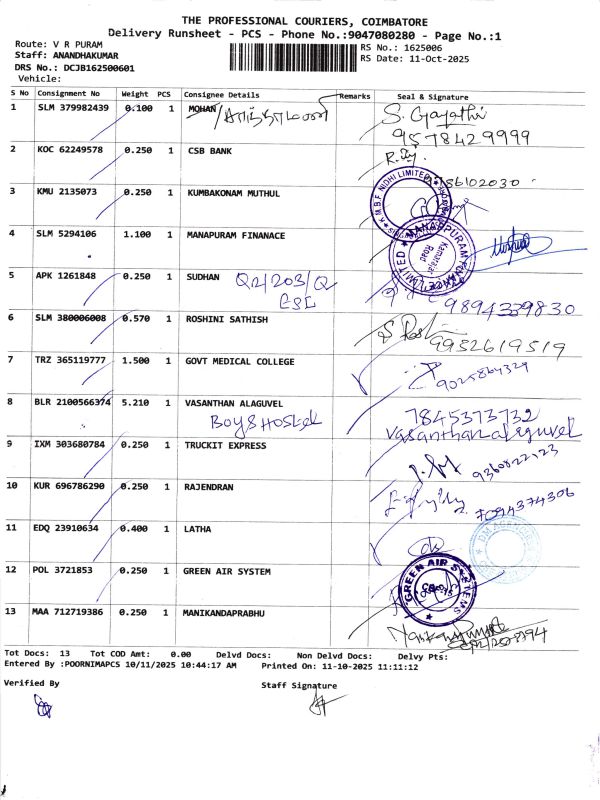 THE PROFESSIONAL COURIERS, COIMBATORE
Delivery Runsheet - PCS - Phone No.:9047080280 - Page No.:1
Route: V R PURAM
RS No.: 1625006
Staff: ANANDHAKUMAR
RS Date: 11-Oct-2025
DRS No.: DCJB162500601
Vehicle:
S No Consignment No Weight PCS Consignee Details Remarks Seal & Signature
1 SLM 379982439 0.100 1 MOHAN/ S. Gayathri
9578429999
2 KOC 62249578 0.250 1 CSB BANK
3 KMU 2135073 0.250 1 KUMBAKONAM MUTHUL
K.M.B.F. NIDHI LIMITED
4 SLM 5294106 1.100 1 MANAPURAM FINANACE
MANAPPURAM FINANCE LIMITED
Kamarajar Road
5 APK 1261848 0.250 1 SUDHAN Q2/203/Q
ESI
6 SLM 380006008 0.570 1 ROSHINI SATHISH
9932619519
7 TRZ 365119777 1.500 1 GOVT MEDICAL COLLEGE
9025864329
8 BLR 2100566374 5.210 1 VASANTHAN ALAGUVEL 7845373732
Boys Hostel Vasanthan alaguvel
9 IXM 303680784 0.250 1 TRUCKIT EXPRESS
9360822123
10 KUR 696786290 0.250 1 RAJENDRAN
7094374306
11 EDQ 23910634 0.400 1 LATHA
12 POL 3721853 0.250 1 GREEN AIR SYSTEM
GREEN AIR SYSTEMS
13 MAA 712719386 0.250 1 MANIKANDAPRABHU
Tot Docs: 13 Tot COD Amt: 0.00 Delvd Docs: Non Delvd Docs: Delvy Pts:
Entered By :POORNIMAPCS 10/11/2025 10:44:17 AM Printed On: 11-10-2025 11:11:12
Verified By Staff Signature